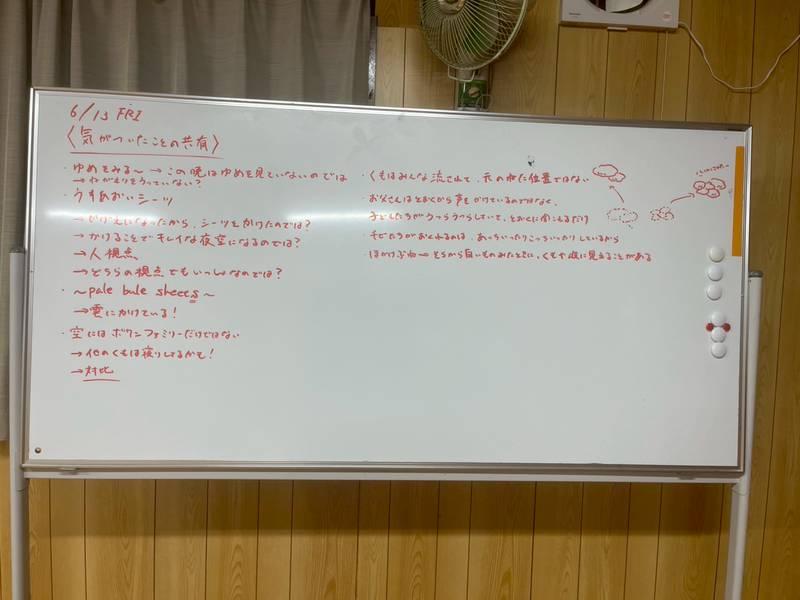 6/13 FRI
〈気がついたことの共有〉
・ゆめをみる〜 → この晩はゆめを見ていないのでは
→ ねがえりをうっていない?
・うすあおいシーツ
→ かけることでキレイな夜空になるのでは?
→ 人視点
→ どちらの視点でもいっしょなのでは?
・〜pale bule sheets〜
→ 雲にかけている!
・空にはボタンファミリーだけではない
→ 他のくもは夜ふかししてるかも!
→ 対比
・くもはみんな流されて、元のねた位置ではない
・お父さんはとおくから声をかけているのではなく、
子どもたちがうつらうつらしていて、とおくに聞こえるだけ
・チビたちがおくれるのは、あっちいったりこっちいったりしているから
・ほかけぶね → そらから白いものみたときに、くもや波に見えることがある